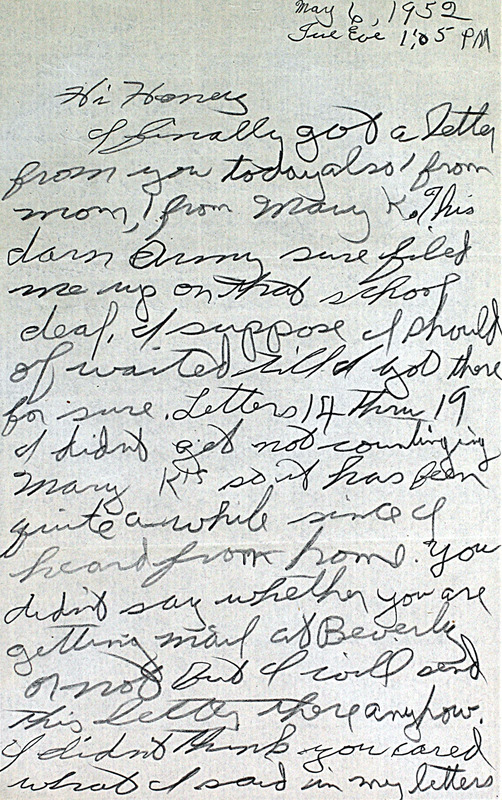 May 6, 1952
Tue Eve 1:05 PM
Hi Honey
I finally got a letter
from you today also 1 from
mom, 1 from Mary K. This
darn Army sure filed
me up on that school
deal, I suppose I should
of waited till I got there
for sure. Letters 14 thru 19
I didn't get not counting
Mary K's so it has been
quite a while since I
heard from home. You
didn't say whether you are
getting mail at Beverly
or not But I will send
this letter there anyhow.
I didn't think you cared
what I said in my letters